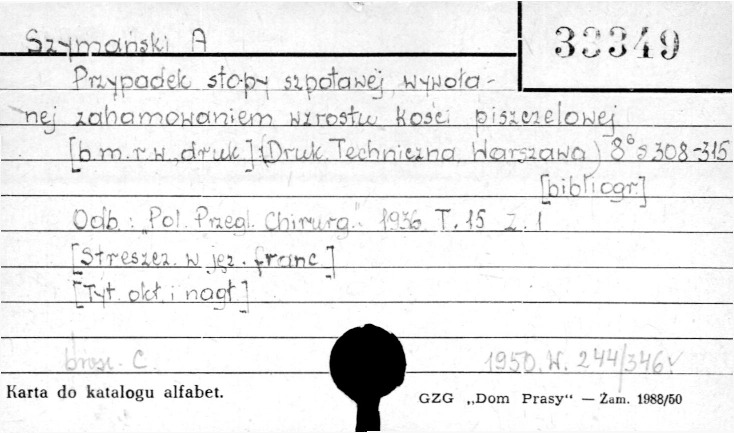 Szymański A
33349
Przypadek stopy szpotawej, wywoła-
nej zahamowaniem wzrostu kości piszczelowej
[b.m.r.w., druk.] (Druk. Techniczna, Warszawa) 8° s 308-315
[bibliogr.]
Odb.: "Pol. Przegl. Chirurg." 1936 T. 15 z. 1
[Streszcz. w jęz. franc.]
[Tyt. okł. i nagł.]
brosz. C.
1950. W. 244/346v
Karta do katalogu alfabet.
GZG „Dom Prasy“ — Żam. 1988/50